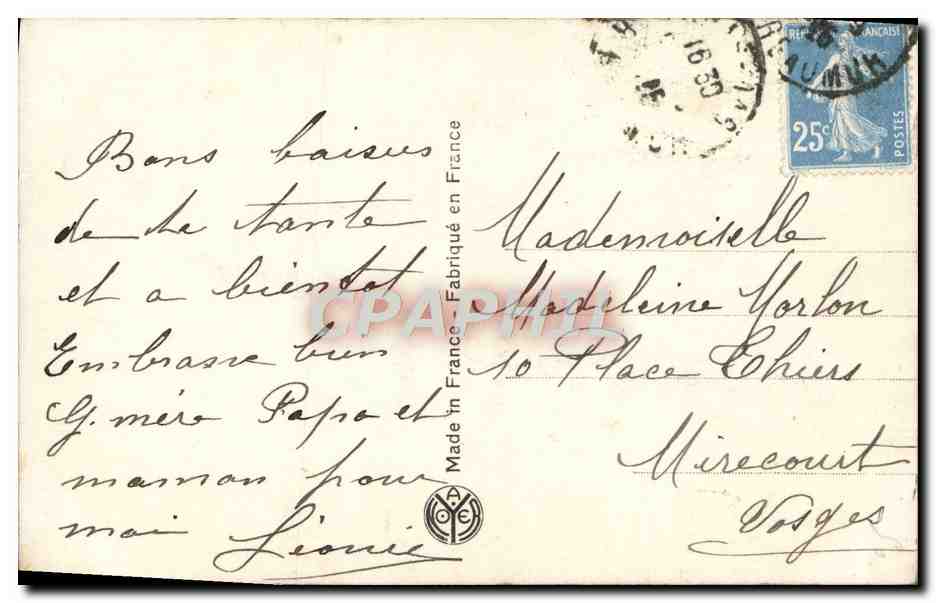 Bons baisers
de ta tante
et a bientot
Embrasse bien
G. mére Papa et
maman pour
moi Léonie
Made in France - Fabriqué en France
CPAPHIL
16 30
REAUMUR
25c
POSTES
Mademoiselle
Madeleine Morlon
10 Place Thiers
Mirecourt
Vosges